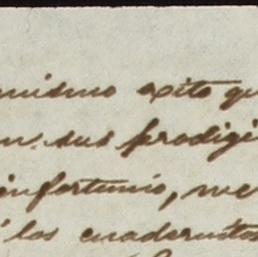 mismo exito qu
n sus prodigi
infortunio, me
los cuadernitos